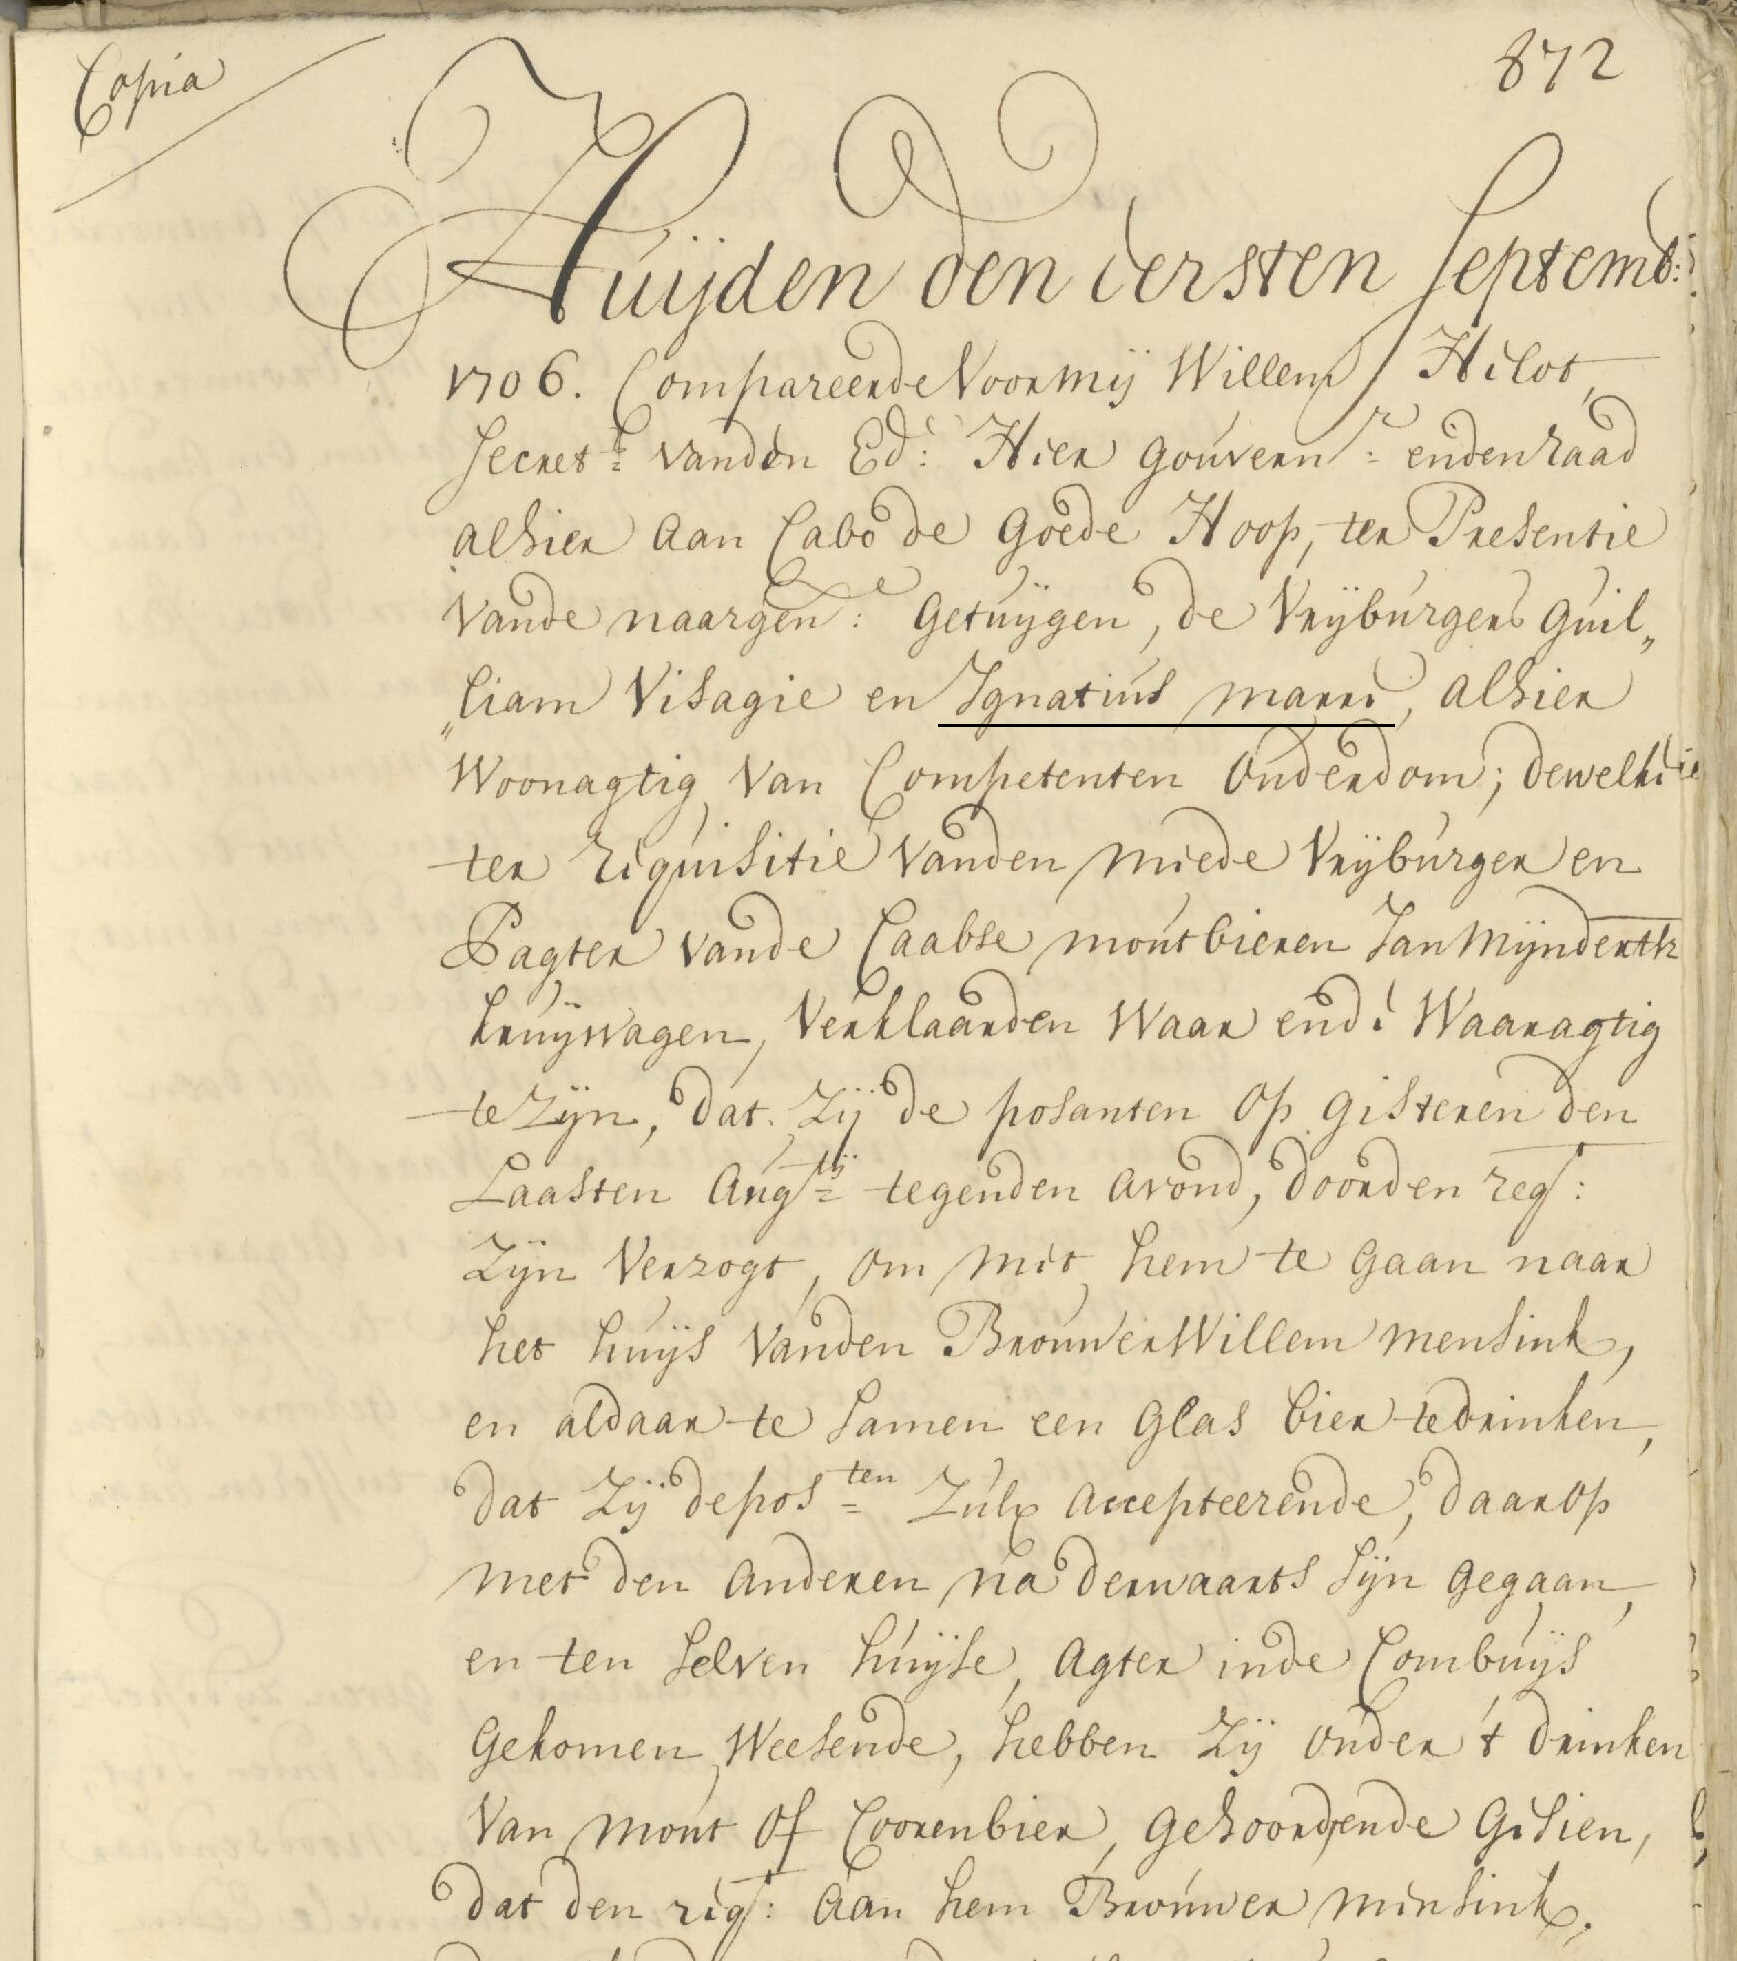 Copia
872
Huijden den eersten Septemb:
1706. Compareerde Voor mij Willem Helot,
secret.s vanden Ed: Heer Gouvern.r enden raad
alhier aan Cabo de Goede Hoop, ter Presentie
vande naargen: Getuijgen, de Vrijburgers Guil„
„liam Visagie en Ignatius Marre, alhier
Woonagtig van Competenten Ouderdom; dewelke
ter requisitie vanden meede Vrijburger en
Pagter vande Caabse moutbieren Jan Mijnderth
kruijwagen, Verklaarden Waar ende Waaragtig
te Zijn, dat Zij deposanten op gisteren den
Laasten Aug.tij tegenden avond, doorden req:
Zijn Verzogt, om met hem te gaan naar
het huijs Vanden Brouwer Willem Mensink,
en aldaar te samen een Glas bier te drinken,
dat Zij depos.ten Zulx accepteerende, daar op
met den anderen na derwaarts sijn gegaan,
en ten selven huijse, agter inde Combuijs
Gekomen Weesende, hebben Zij onder 't drinken
Van mout of Coorenbier, gehoord ende Gesien,
dat den req: aan hem Brouwer Mensink,